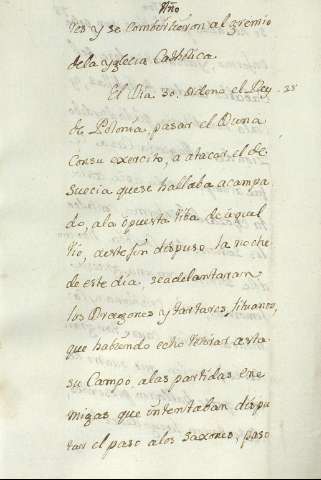 Año
res y se combirtieron al gremio
dela yglecia Catholica.
El Dia 30. ordeno el Rey
de Polonia, pasar el Duna
consu exercito, a atacar el de
Suecia quese hallaba acampa
do, ala opuesta riba de aquel
rio, aeste fin dispuso la noche
de este dia, seadelantaran
los Dragones y tartaros,
que habiendo echo retirar asta
su Campo, alas partidas ene
migas que intentaban dispu
tar el paso alos saxones, paso